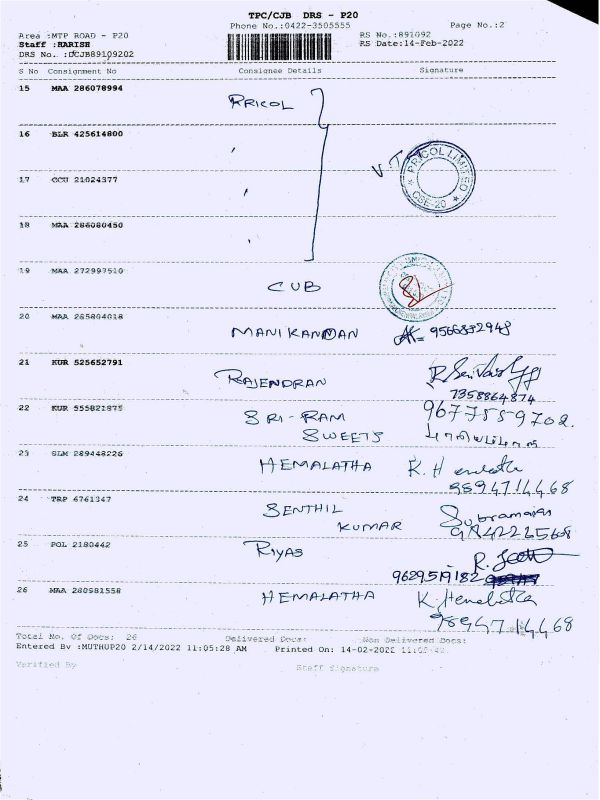 TPC/CJB DRS - P20
Phone No.:0422-3505555
Page No.:2
Area :MTP ROAD - P20
Staff :HARISH
DRS No. :DCJB89109202
RS No.:891092
RS Date:14-Feb-2022
S No Consignment No Consignee Details Signature
15 MAA 286078994 PRICOL
16 BLR 425614800
V.T
PRICOL LIMITED
CBE-20
17 CCU 21024377
18 MAA 286080450
19 MAA 272997510 CUB
20 MAA 265804018 MANIKANDAN 9566832948
21 KUR 525652791 RAJENDRAN
7358864874
22 KUR 555821875 SRI-RAM 9677559702.
SWEETS
23 SLM 289448226 HEMALATHA K. Hemalatha
9894714468
24 TRP 6761347 SENTHIL Subramaian
KUMAR 9842265608
25 POL 2180442 RIYAS
9629519182
26 MAA 280981558 HEMALATHA K. Hemalatha
9894714468
Total No. Of Docs: 26 Delivered Docs: Non Delivered Docs:
Entered By :MUTHUP20 2/14/2022 11:05:28 AM Printed On: 14-02-2022
Verified By Staff Signature